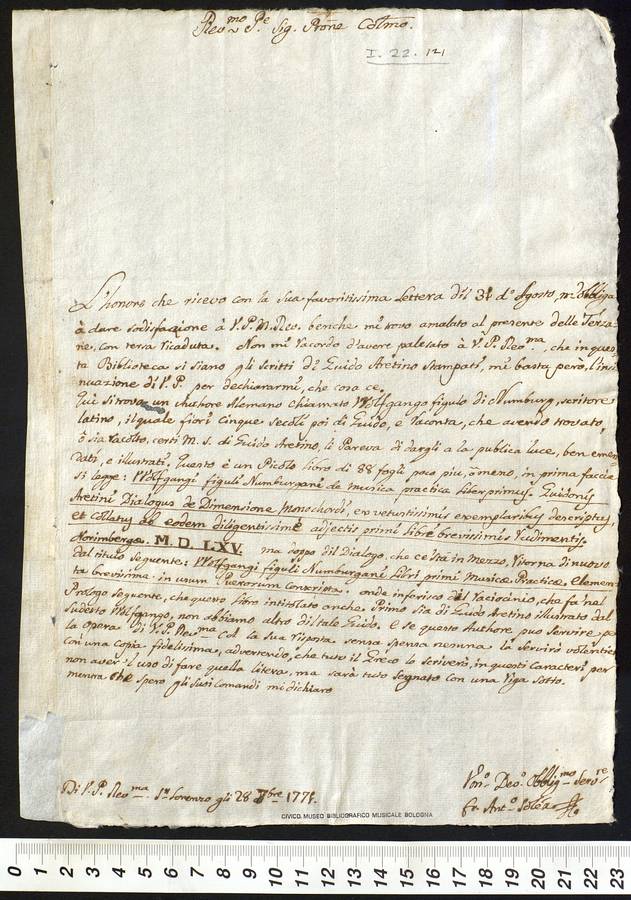 Reu.mo P.e Sig. Prõne Colmo.
I. 22. 121
L'honore che ricevo con la Sua favoritissima Lettera dil 31 d'Agosto, m'obbliga
à dare sodisfazione à V.P.M.Reo. benche mi trovo amalato al presente delle Terza-
ne, con terza ricaduta. Non mi racordo d'avere palesato à V. P. Reo.ma, che in ques-
ta Biblioteca si siano gli scritti di Guido Aretino Stampati, mi basta però, l'insi-
nuazione di V. P. per dechiararmi, che cosa c'e.
Qui si trova un Authore Alemano chiamato Wolfgango figulo di Numburg, scritore
latino, il quale fiorì Cinque Secoli poi di Guido, e raconta, che avendo trovato,
ò sia racolto, certi M. S. di Guido Aretino, li Pareva di dargli a la publica luce, ben emen-
dati, e illustrati. Questo è un Picolo libro di 88 fogli poco piu, ò meno, in prima faccia
si legge: Wolfgangi figuli Numburgani de musica practica liber primus. Guidonis
Aretini Dialogus de Dimensione Monochordi, ex vetustissimis exemplaribus descriptus,
et Collatus ab eodem diligentissimè adjectis primi libri brevissimis rudimentis,
Norimbergæ. M. D. LXV. ma doppo dil Dialogo, che esta in Mezzo, ritorna di nuovo
dal titulo seguente: Wolfgangi figuli Numburgani libri primi Musicæ Practicæ Elemen-
ta brevissima in usum Puerorum Conscripta. onde inferisco del raciocinio, che fa nel
Prologo seguente, che questo libro intitolato anche Primo sia di Guido Aretino illustrato dal
sudetto Wolfgango, non abbiamo altro dil tale Guido. E se questo Authore puo Servire per
la opera di V.S.P. Reo.ma Col la sua risposta senza spensa nesuna la Servirò volentieri
con una Copia fidelissima, advertendo, che tuto il Greco lo Scriverò, in questi Caracteri per
non aver'il uso di fare quella litera, ma sarà tuto Segnato con una Riga sotto.
mentra che spero gli Suoi Comandi mi dichiaro
Di V. P. Reo.ma S.n Lorenzo gli 28 7bre 1771.
Vm.o Deo.o Obblig.mo Serv.re
fr. Ant.o Solér
CIVICO MUSEO BIBLIOGRAFICO MUSICALE BOLOGNA
0 1 2 3 4 5 6 7 8 9 10 11 12 13 14 15 16 17 18 19 20 21 22 23